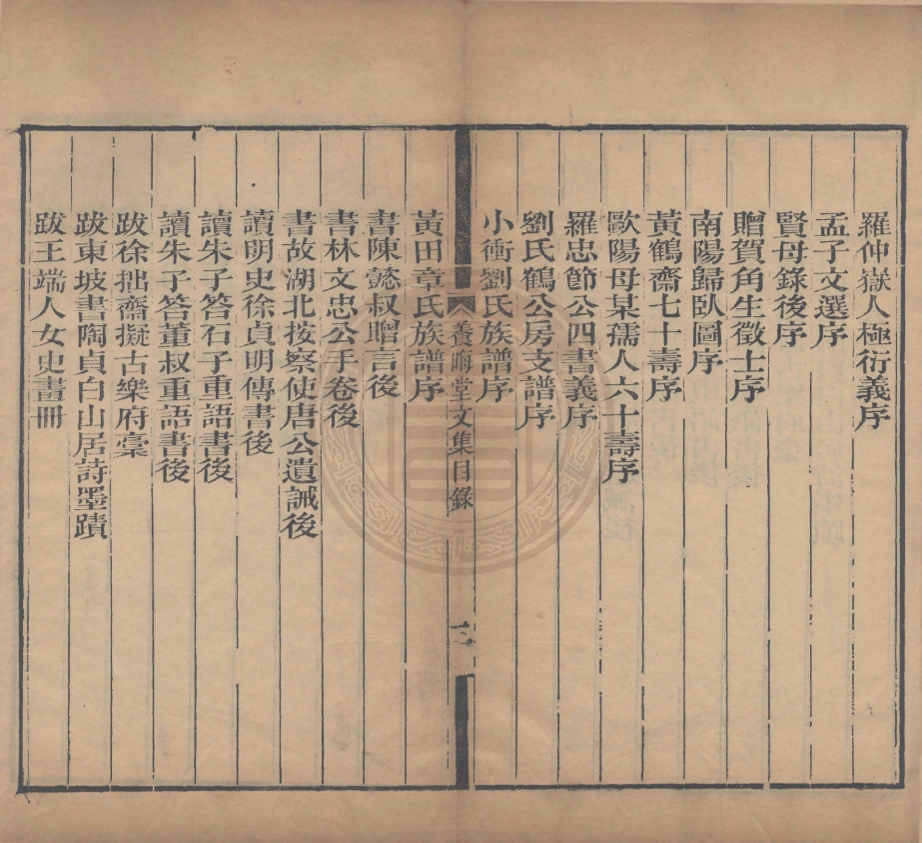 羅仲嶽人極衍義序
孟子文選序
賢母錄後序
贈賀角生徵士序
南陽歸臥圖序
黃鶴齋七十壽序
歐陽母某孺人六十壽序
羅忠節公四書義序
劉氏鶴公房支譜序
小衝劉氏族譜序
養晦堂文集目錄
二
黃田章氏族譜序
書陳懿叔贈言後
書林文忠公手卷後
書故湖北按察使唐公遺誡後
讀明史徐貞明傳書後
讀朱子答石子重語書後
讀朱子答董叔重語書後
跋徐拙齋擬古樂府稾
跋東坡書陶貞白山居詩墨蹟
跋王端人女史畫冊